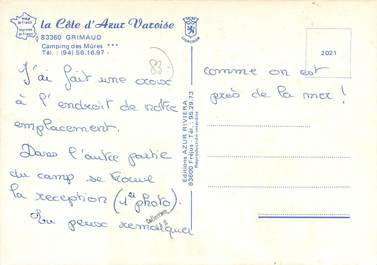 la Côte d'Azur Varoise
83360 GRIMAUD
Camping des Mûres ***
Tél.: (94) 56.16.97
83
J'ai fait une croix
à l'endroit de notre
emplacement.
Dans l'autre partie
du camp se trouve
la réception (1ère photo)
Tu peux remarquer
Editions AZUR RIVIERA
83600 Fréjus - Tél.: 95.29.73
Reproduction interdite
2021
comme on est
près de la mer !